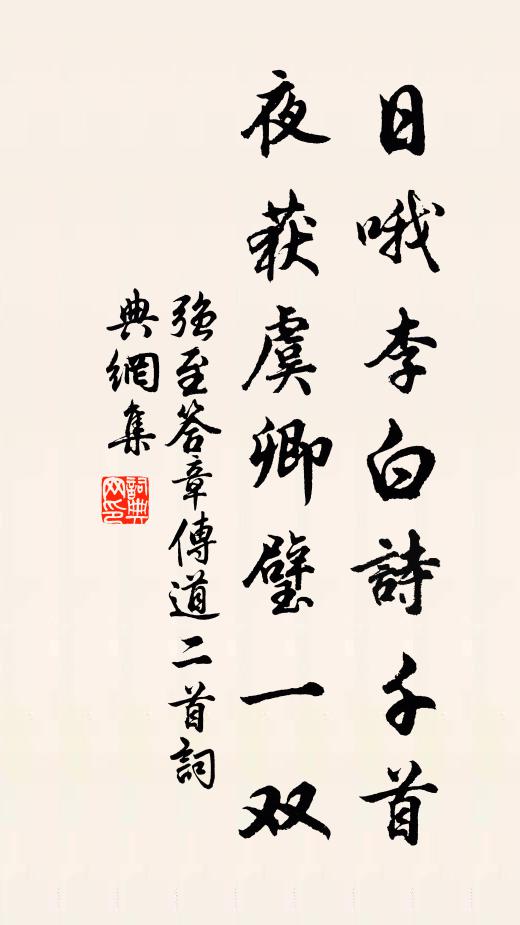 日哦李白詩千首
夜获虞卿璧一双
强至答章傳道二首詞
典網集
詞典网印